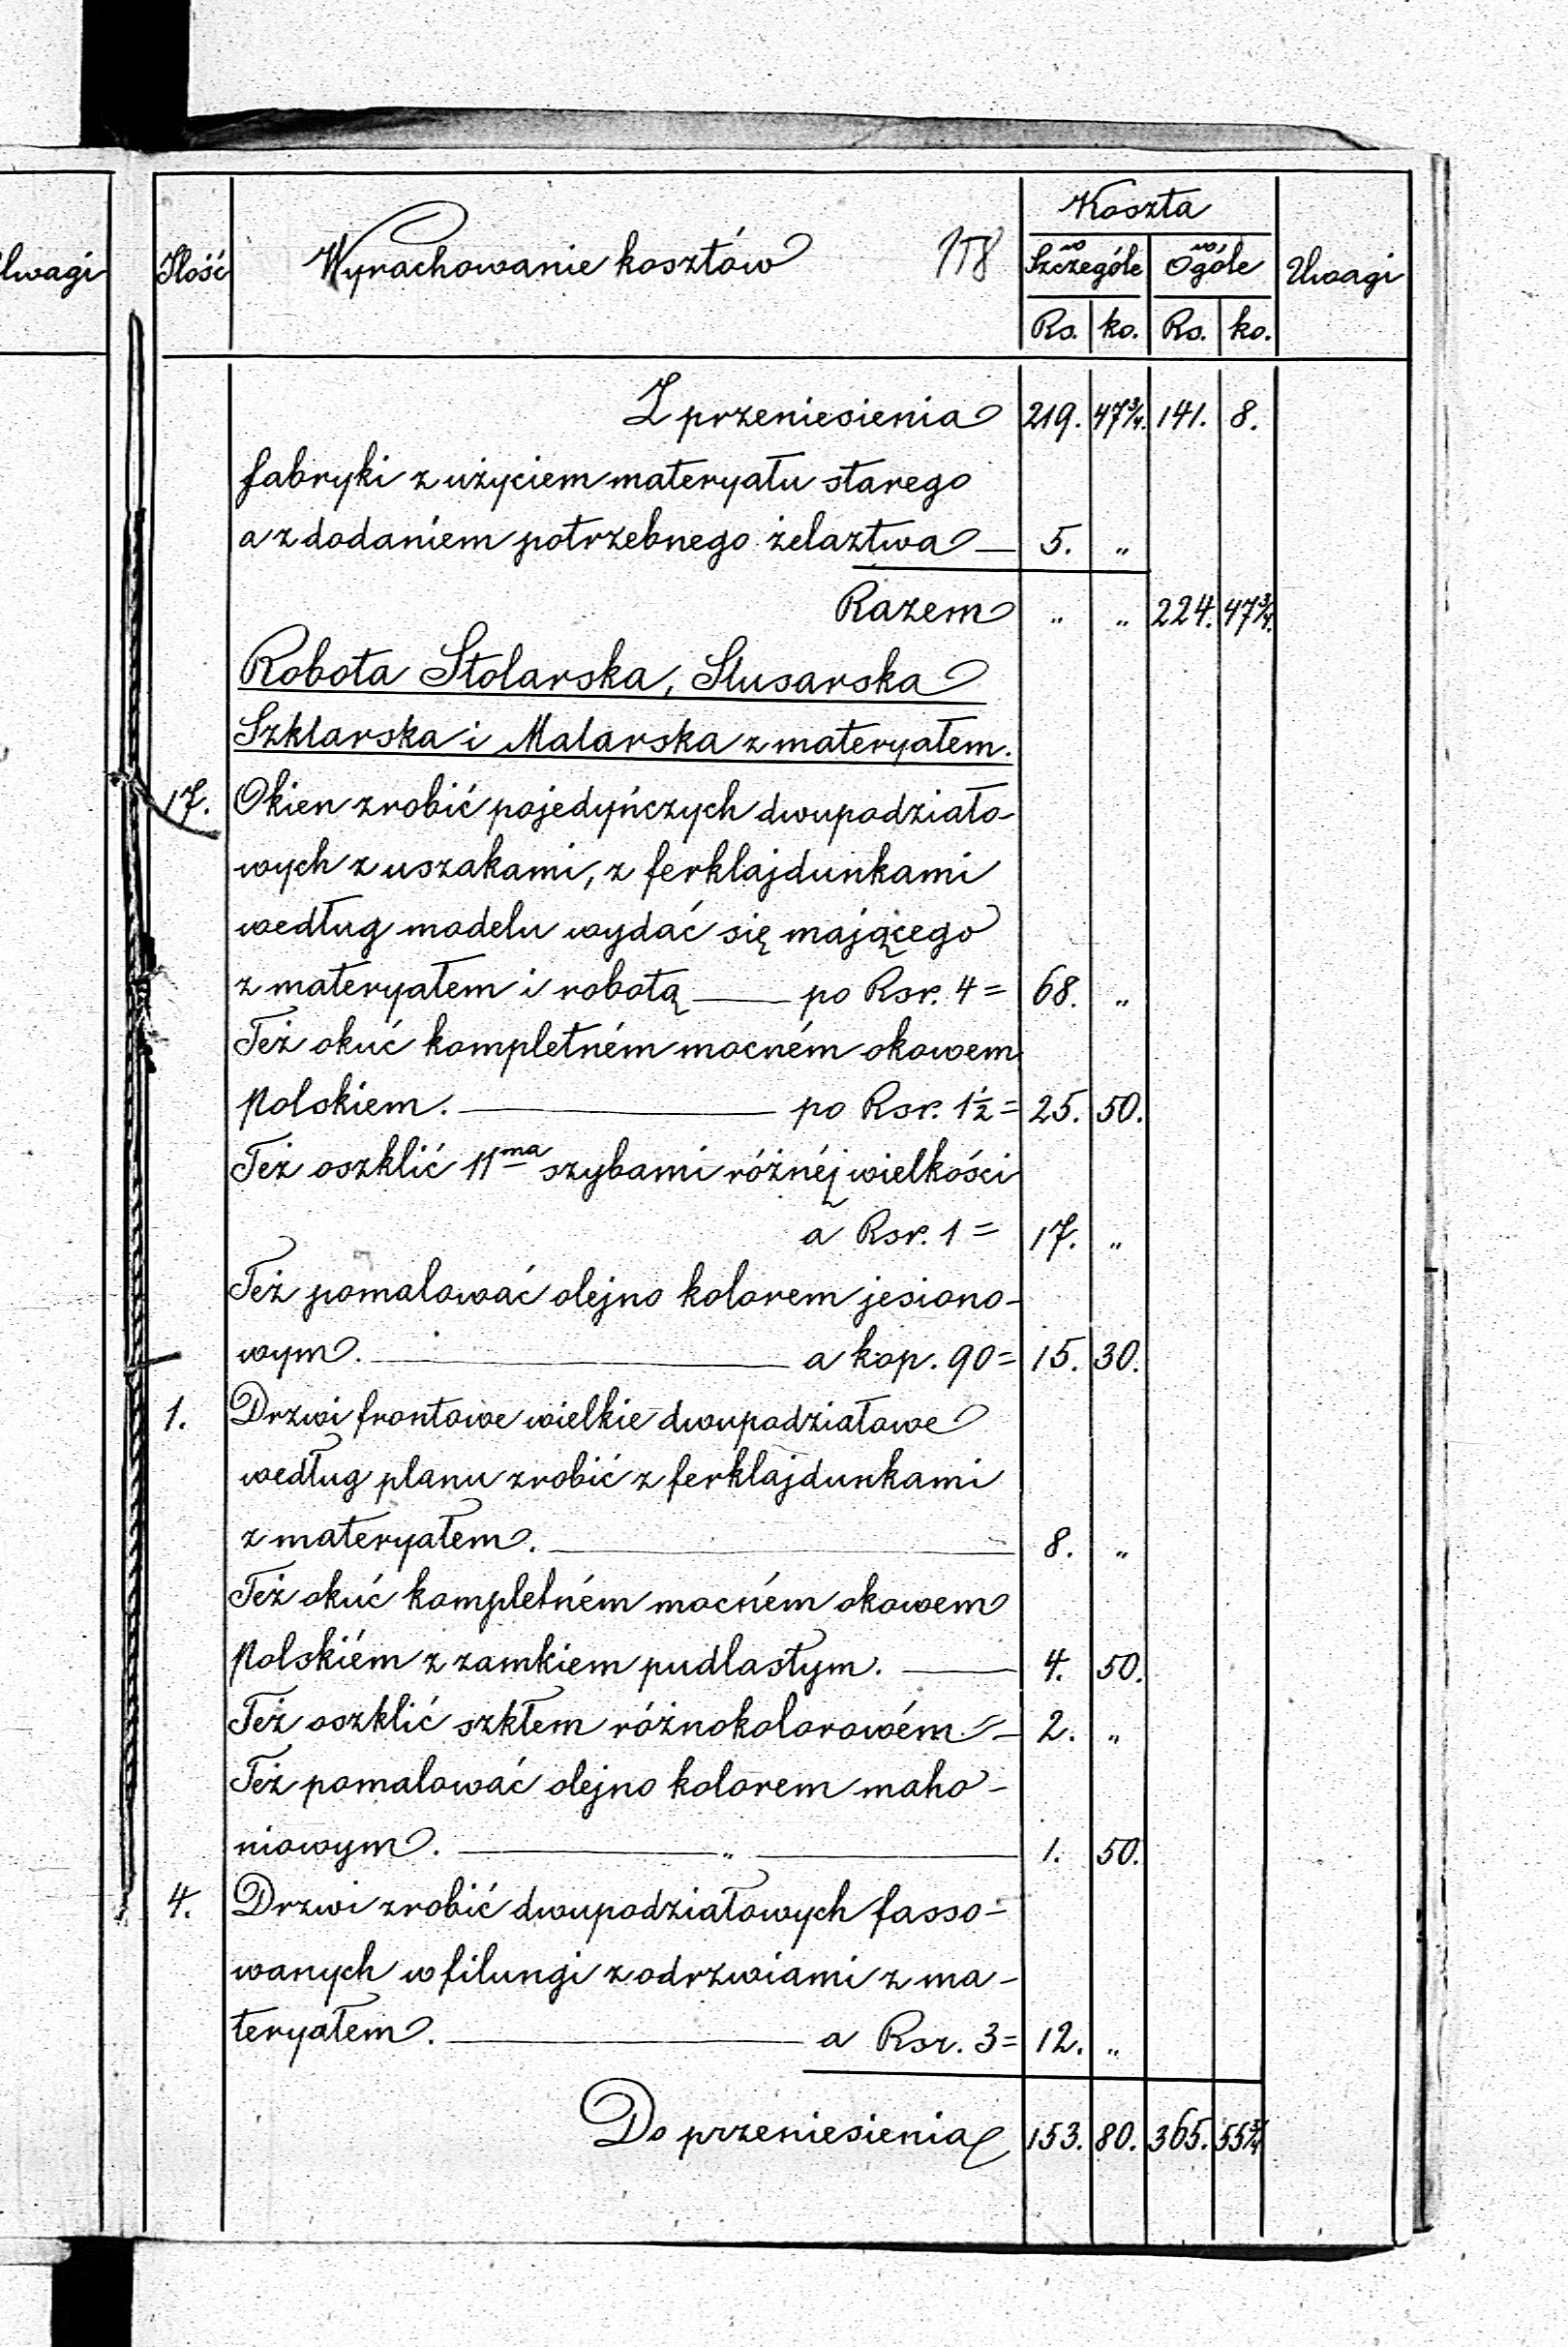 Uwagi
Ilość Wyrachowanie kosztów 158 Koszta Uwagi
w Szczególe w Ogóle
Rs. ko. Rs. ko.
Z przeniesienia 219. 47¾. 141. 8.
fabryki z użyciem materyału starego
a z dodaniem potrzebnego żelaztwa — 5. „
Razem „ „ 224. 47¾.
Robota Stolarska, Slusarska
Szklarska i Malarska z materyałem.
17. Okien zrobić pojedyńczych dwupodziało-
wych z uszakami, z ferklajdunkami
według modelu wydać się mającego
z materyałem i robotą — po Rsr. 4 = 68. „
Też okuć kompletném mocném okowem
Polskiem. — po Rsr. 1½ = 25. 50.
Też oszklić 11ma szybami różnéj wielkości
a Rsr. 1 = 17. „
Też pomalować olejno kolorem jesiono-
wym. — a kop. 90 = 15. 30.
1. Drzwi frontowe wielkie dwupodziałowe
według planu zrobić z ferklajdunkami
z materyałem. — 8. „
Też okuć kompletném mocném okowem
Polskiém z zamkiem pudlastym. — 4. 50.
Też oszklić szkłem różnokolorowém = — 2. „
Też pomalować olejno kolorem maho-
niowym. — „ — 1. 50.
4. Drzwi zrobić dwupodziałowych fasso=
wanych w filungi z odrzwiami z ma-
teryałem. — a Rsr. 3 = 12. „
Do przeniesienia 153. 80. 365. 55¾